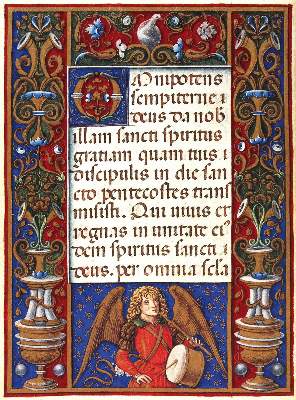 Omnipotens
sempiterne
deus da nob
illam sancti spiritus
gratiam quam tuis
discipulis in die san
cto pentecostes trans
misisti. Qui vivis et
regnas in unitate ei
dem spiritus sancti
deus. per omnia secla